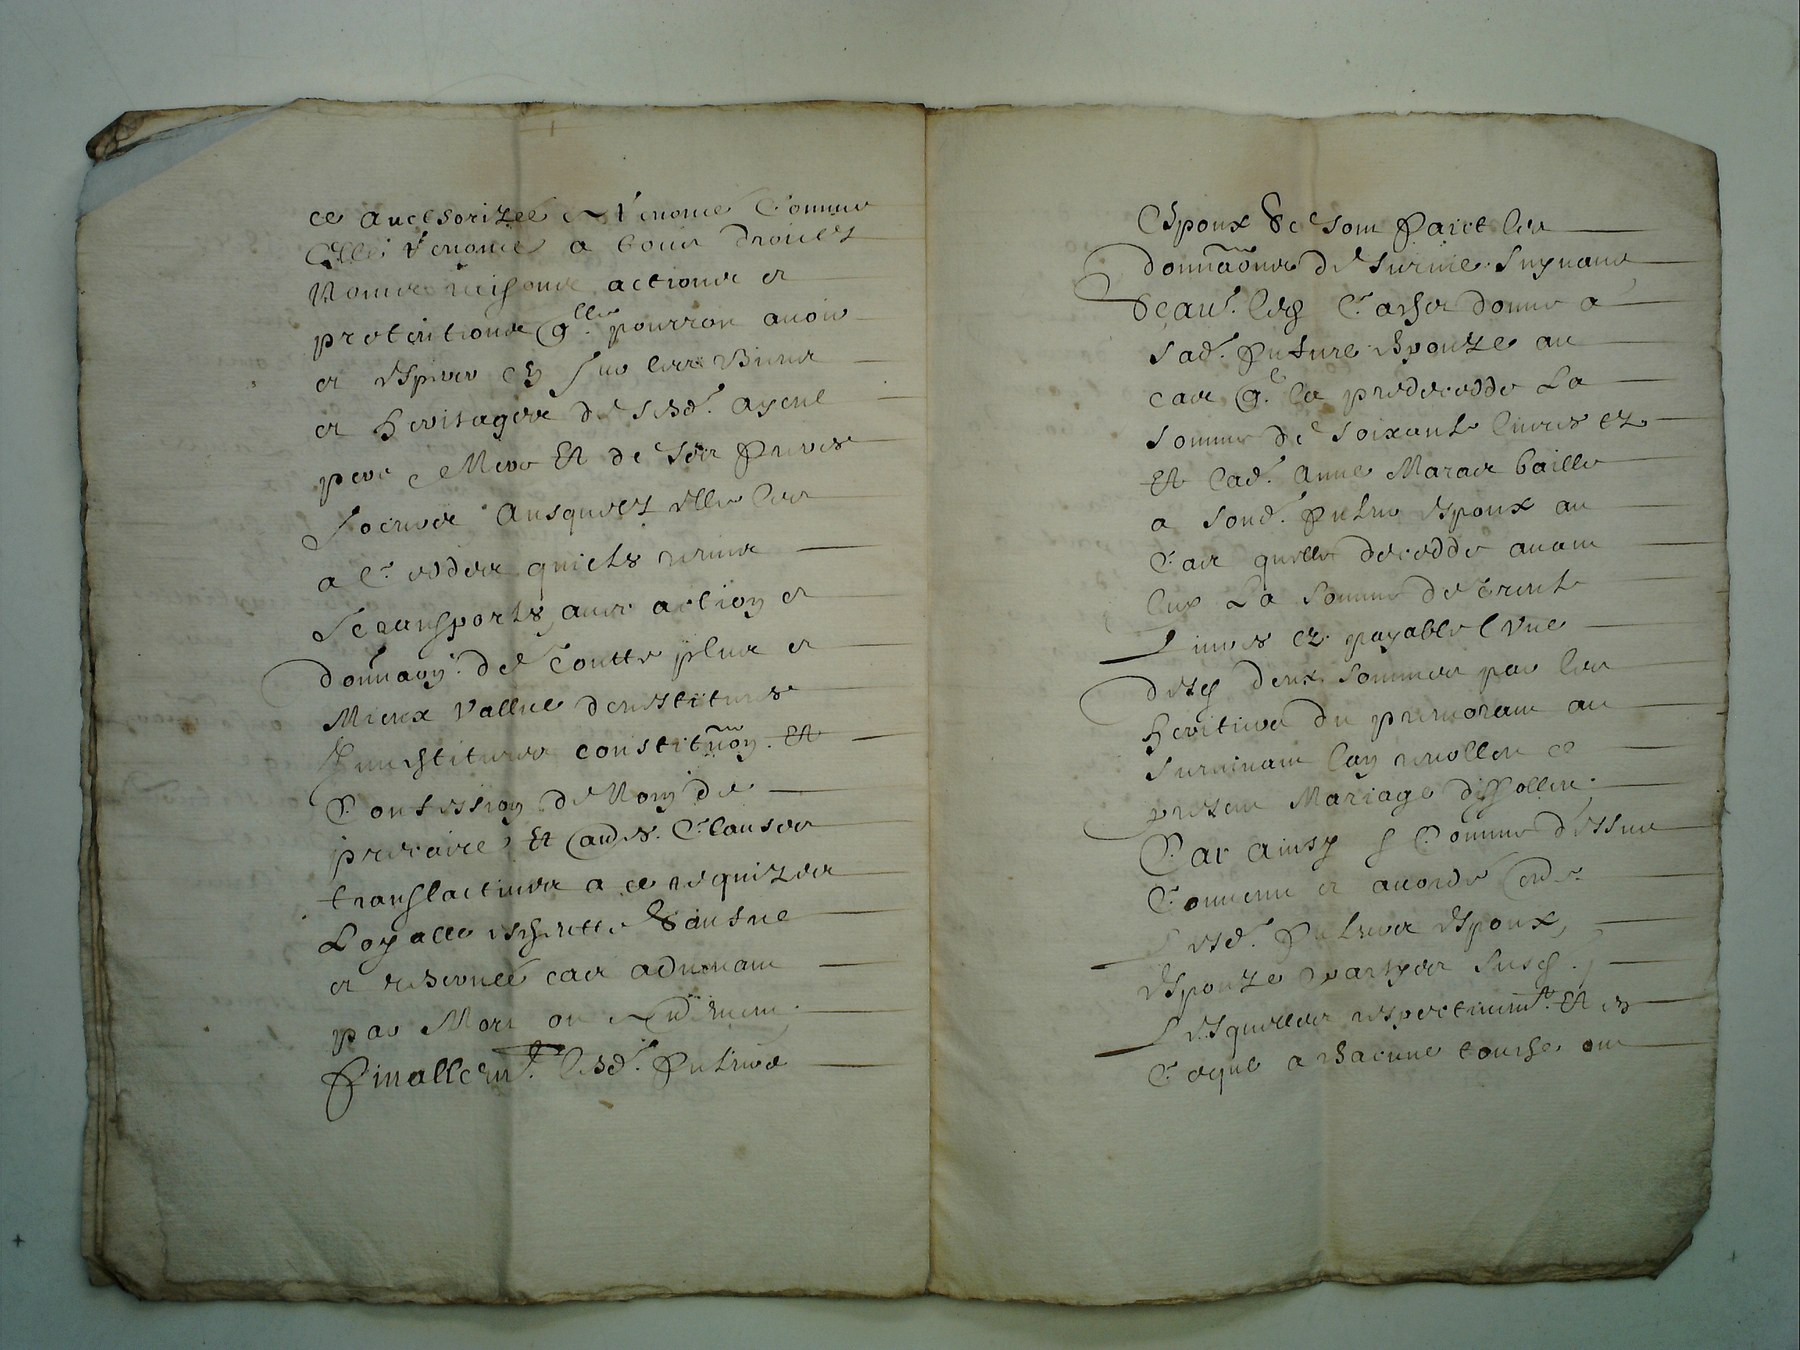 ce aucthorizee Renonce Comme
Elle Renonce a tous droictz
Noms raisons actions et
pretentions q.lle pourron avoir
et esperer en sur les Biens
et heritages de sesd. ayeul
pere Mere Et de ses freres
Socurs Ausquelz elle les
a Ceddes quicts remis
Transportés avec action et
donnaon. de toutte plus et
Mieux vallue devestitures
Investitures constitu͠on. Et
Confession de Nom de
precaire Et aud.s Clauses
translactives a ce requizes
Loyalle
et reservée cas advenant
par Mort ou
Finallem.t lesd. futurs
Espoux Se sont faict les
donna͠ons de survie suyvant
Scav. led. Espoux donne a
sad. future Espouze au
cas q.e la predecedde La
somme de soixante livres tz
Et lad. Anne Maras baille
a sond. futur Espoux au
Cas quelle decedde avant
luy La somme de trente
Livres tz. payable l'Une
desd. deux sommes par les
heritiers du premorant au
survivant Lan revollu ce
present Mariage dissollu.
Car ainsy Comme dessus
Convenu et accordé entre
Lesd. futurs Espoux,
Espouze parties susd.
Lesquelles respectivem.t Et en
Ceque a chacune touche ou